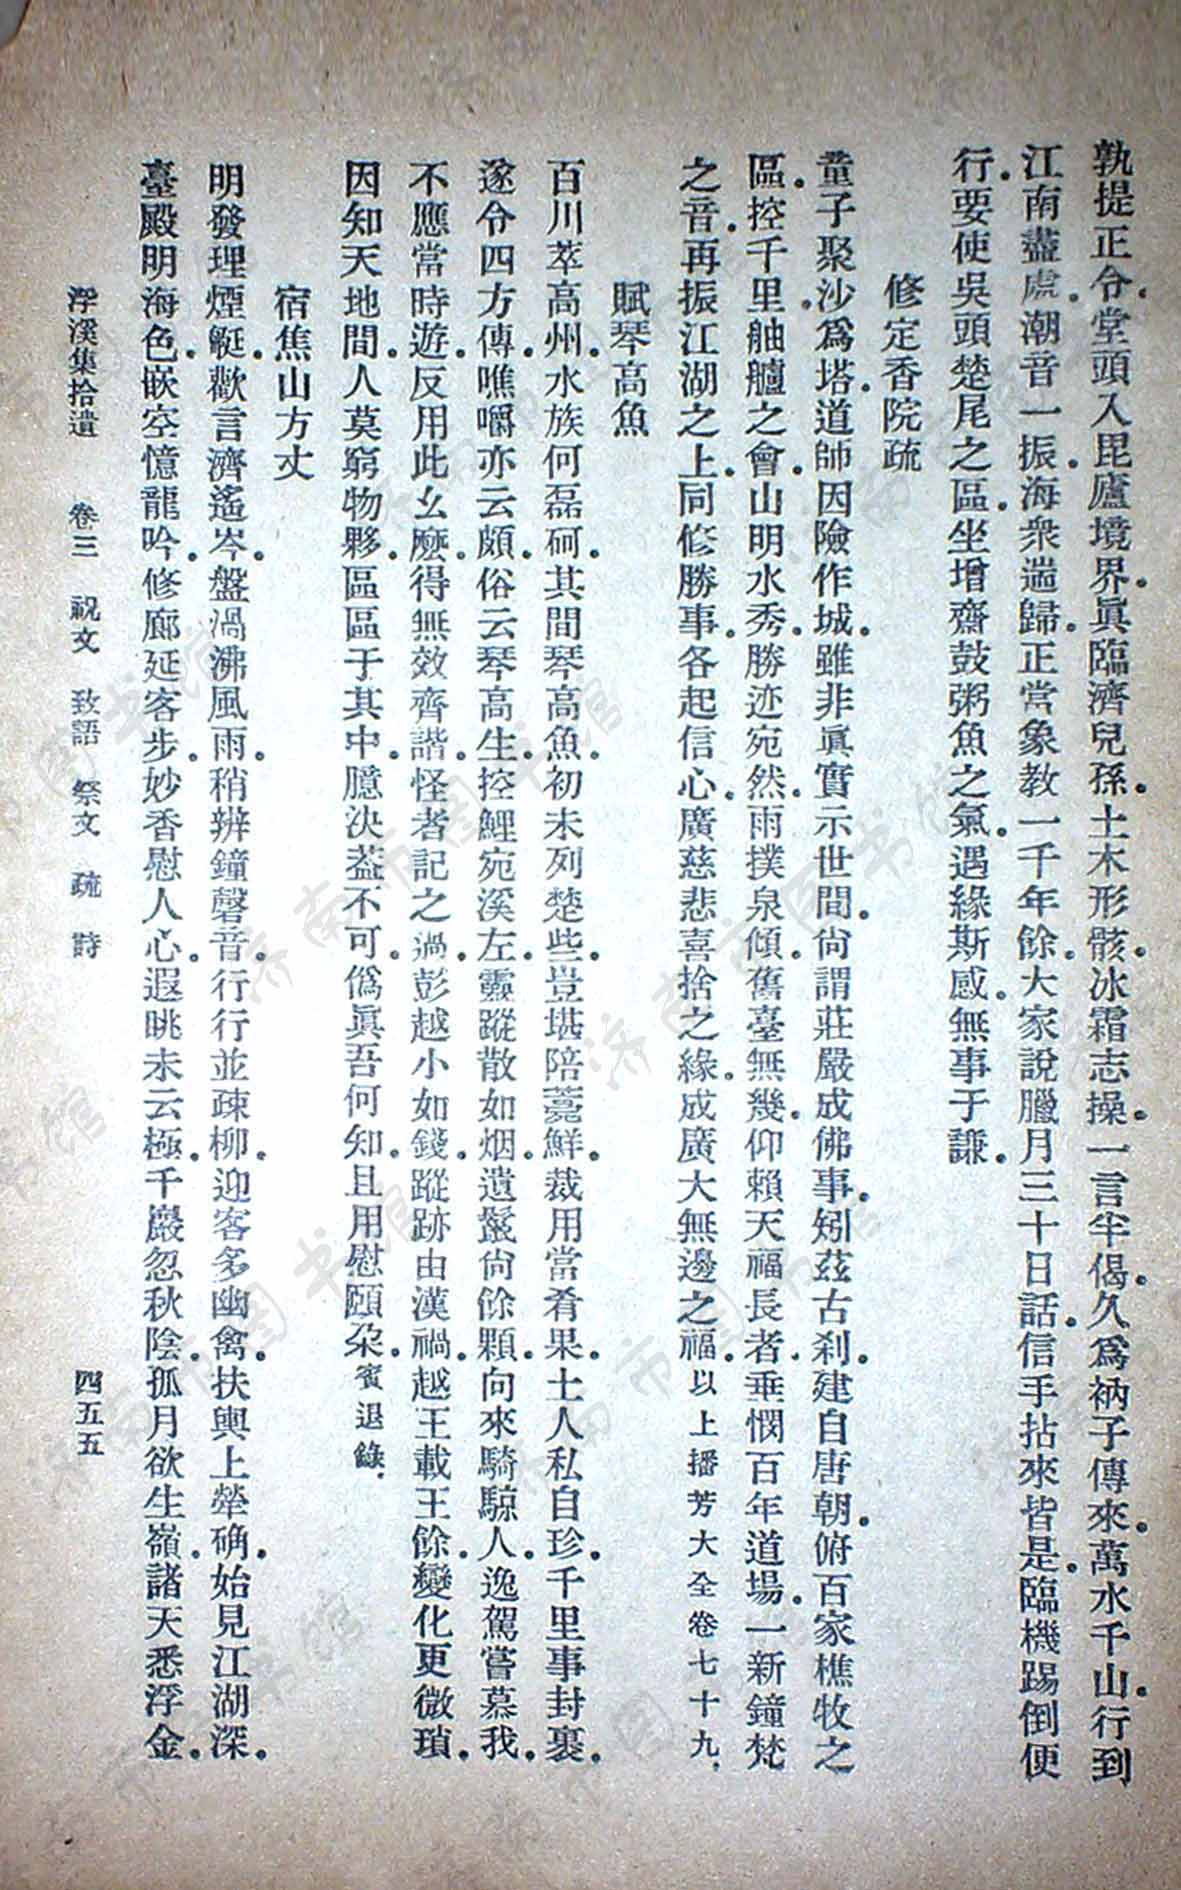 孰提正令堂頭入毘廬境界。眞臨濟兒孫。土木形骸。冰霜志操。一言半偈。久爲衲子傳來。萬水千山。行到
江南盡處。潮音一振。海衆遄歸。正當象教一千年餘。大家說臘月三十日話。信手拈來皆是。臨機踢倒便
行。要使吳頭楚尾之區。坐增齋鼓粥魚之氣。遇緣斯感。無事于謙。
修定香院疏
童子聚沙爲塔。道師因險作城。雖非眞實示世間。尙謂莊嚴成佛事。矧茲古刹。建自唐朝。俯百家樵牧之
區。控千里舳艫之會。山明水秀。勝迹宛然。雨撲泉傾。舊臺無幾。仰賴天福長者。垂憫百年道場。一新鐘梵
之音。再振江湖之上。同修勝事。各起信心。廣慈悲喜捨之緣。成廣大無邊之福。以上播芳大全卷七十九。
賦琴高魚
百川萃高州。水族何磊砢。其間琴高魚。初未列楚些。豈堪陪薧鮮。裁用當肴果。土人私自珍。千里事封裹。
遂令四方傳。噍嚼亦云頗。俗云琴高生。控鯉宛溪左。靈蹤散如烟。遺鬣尙餘顆。向來騎鯨人。逸駕嘗慕我。
不應當時遊。反用此幺麼。得無效齊諧。怪者記之過。彭越小如錢。蹤跡由漢禍。越王載王餘。變化更微瑣。
因知天地間。人莫窮物夥。區區于其中。臆決葢不可。僞眞吾何知。且用慰頤朵。賓退錄。
宿焦山方丈
明發理煙艇。歡言濟遙岑。盤渦沸風雨。稍辨鐘磬音。行行並疎柳。迎客多幽禽。扶輿上犖确。始見江湖深。
臺殿明海色。嵌空憶龍吟。修廊延客步。妙香慰人心。遐眺未云極。千巖忽秋陰。孤月欲生嶺。諸天悉浮金。
浮溪集拾遺 卷三 祝文 致語 祭文 疏 詩 四五五